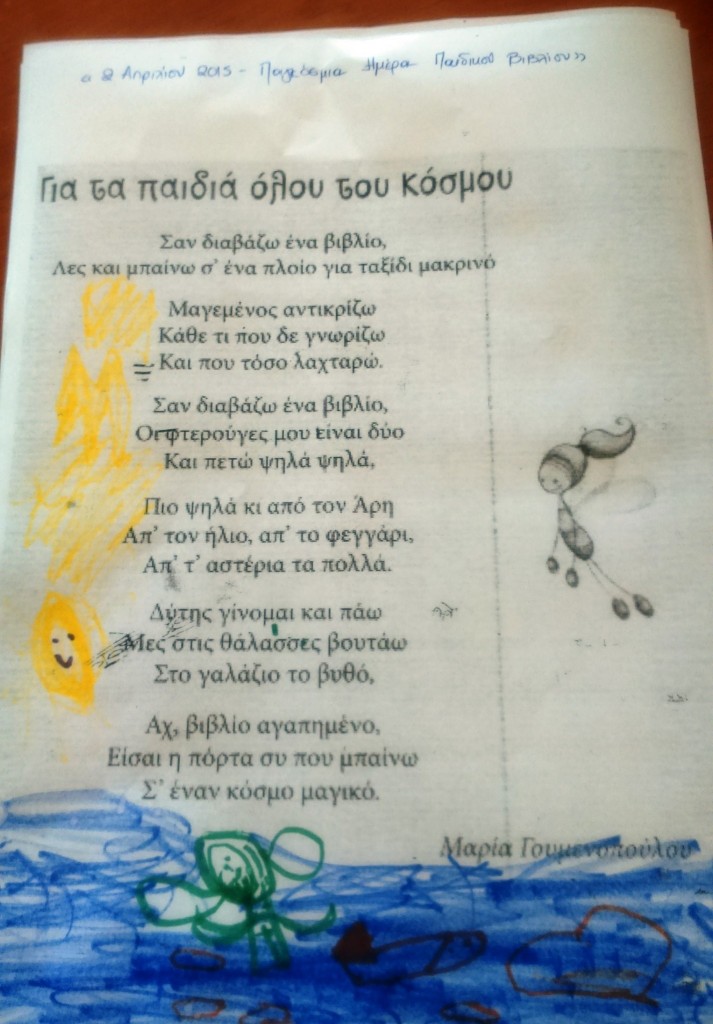 « 2 Απριλίου 2015 - Παγκόσμια Ημέρα Παιδικού Βιβλίου»
Για τα παιδιά όλου του κόσμου
Σαν διαβάζω ένα βιβλίο,
Λες και μπαίνω σ' ένα πλοίο για ταξίδι μακρινό
Μαγεμένος αντικρίζω
Κάθε τι που δε γνωρίζω
Και που τόσο λαχταρώ.
Σαν διαβάζω ένα βιβλίο,
Οι φτερούγες μου είναι δύο
Και πετώ ψηλά ψηλά,
Πιο ψηλά κι από τον Άρη
Απ' τον ήλιο, απ' το φεγγάρι,
Απ' τ' αστέρια τα πολλά.
Δύτης γίνομαι και πάω
Μες στις θάλασσες βουτάω
Στο γαλάζιο το βυθό,
Αχ, βιβλίο αγαπημένο,
Είσαι η πόρτα συ που μπαίνω
Σ' έναν κόσμο μαγικό.
Μαρία Γουμενοπούλου